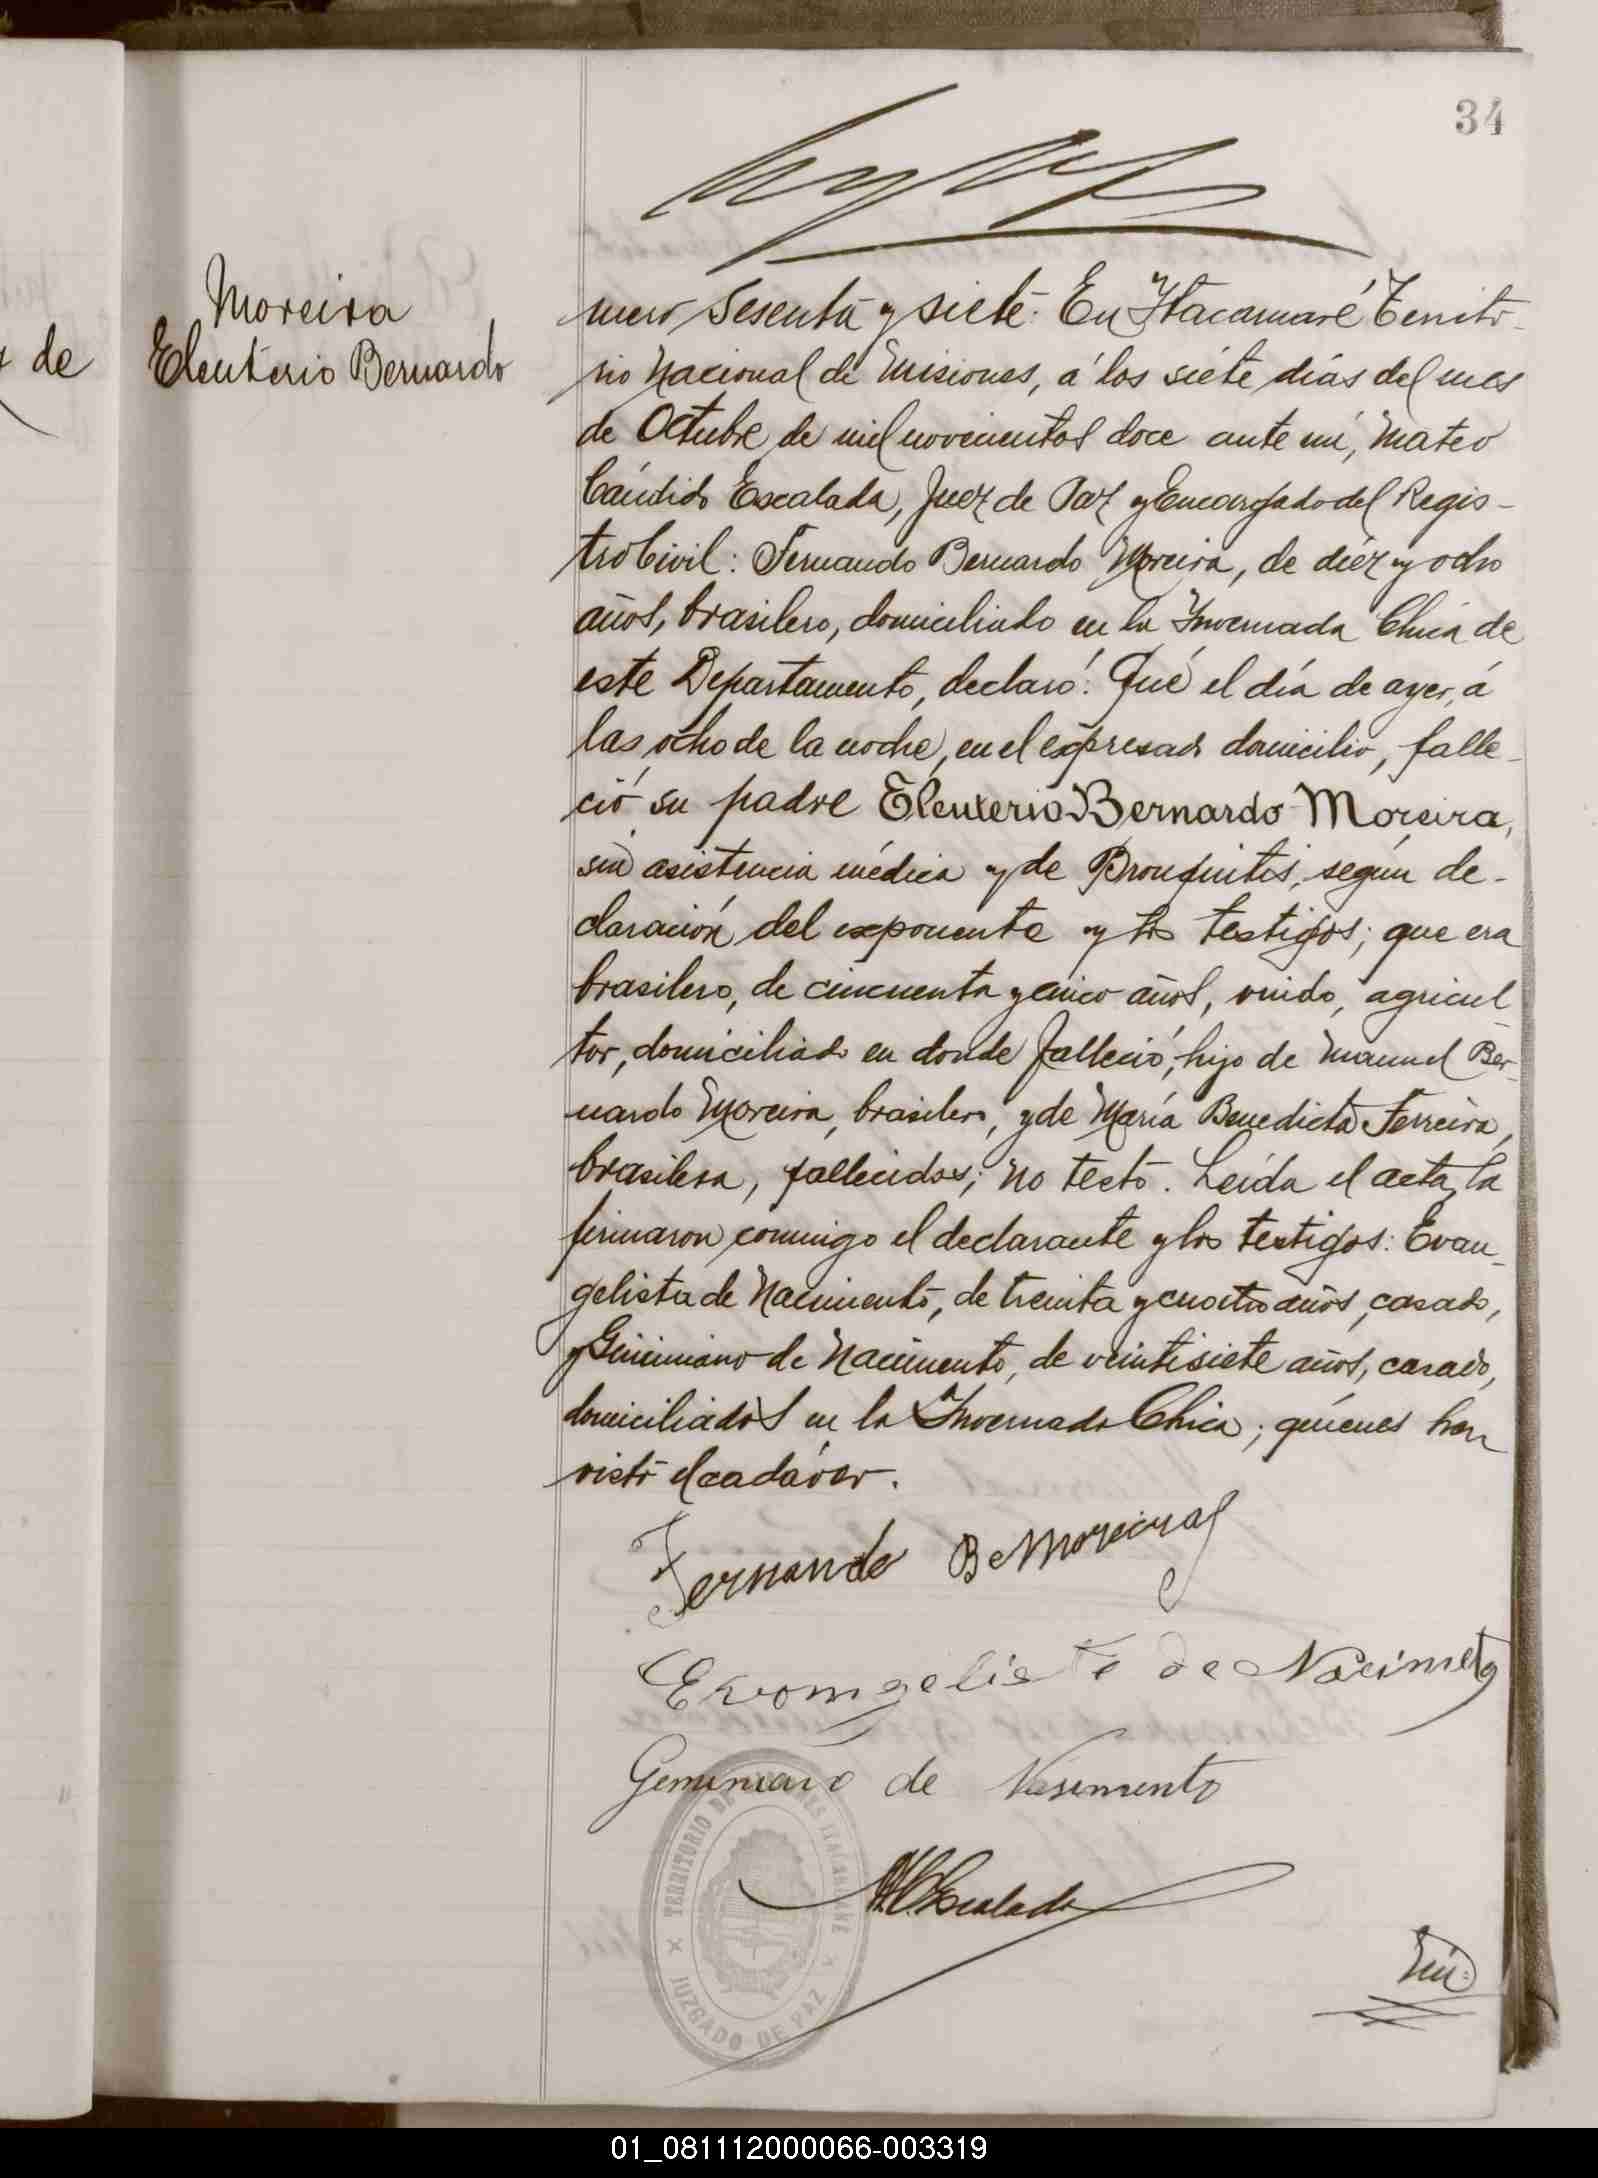 34
Moreira
Eleuterio Bernardo
de
mero Sesenta y siete. En Itacaruaré Territo-
rio Nacional de Misiones, á los siete días del mes
de Octubre de mil novecientos doce ante mí, Mateo
Cándido Escalada, Juez de Paz y Encargado del Regis-
tro Civil: Fernando Bernardo Moreira, de diez y ocho
años, brasilero, domiciliado en la Invernada Chica de
este Departamento, declaró: Que el día de ayer, á
las ocho de la noche, en el expresado domicilio, falle-
ció su padre Eleuterio Bernardo Moreira,
sin asistencia médica y de Bronquitis, según de-
claración del exponente y los testigos; que era
brasilero, de cincuenta y cinco años, viudo, agricul-
tor, domiciliado en donde falleció, hijo de Manuel Ber-
nardo Moreira, brasilero, y de María Benedicta Ferreira,
brasilera, fallecidos; no testó. Leída el acta, la
firmaron conmigo el declarante y los testigos: Evan-
gelista de Nacimento, de treinta y cuatro años, casado,
y Giminiano de Nacimento, de veintisiete años, casado,
domiciliados en la Invernada Chica; quienes han
visto el cadáver.
Fernando Be Moreira
Evomgeliste de Nacimeto
Geminiano de Nasimento
M. C. Escalada
TERRITORIO DE MISIONES ITACARUARÉ
JUZGADO DE PAZ
Nú=
01_081112000066-003319